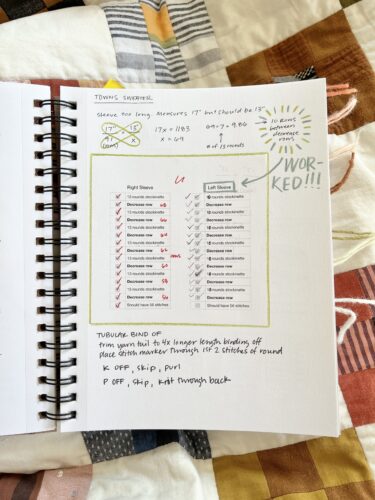 TOWNS SWEATER
sleeve too long. measures 17" but should be 13"
17" 13"
91 x
(rows)
17x = 1183
x = 69
69 ÷ 7 = 9.86
# of 13 rounds
10 ROWS
between
decrease
rows
WOR-
KED!!!
Right Sleeve
13 rounds stockinette
Decrease row 68
13 rounds stockinette
Decrease row 66
13 rounds stockinette
Decrease row 64
13 rounds stockinette
Decrease row 62
13 rounds stockinette
Decrease row 60
13 rounds stockinette
Decrease row 58
13 rounds stockinette
Decrease row 56
Should have 56 stitches
Left Sleeve
rounds stockinette
Decrease row
rounds stockinette
Decrease row
rounds stockinette
Decrease row
rounds stockinette
Decrease row
rounds stockinette
Decrease row
rounds stockinette
Decrease row
rounds stockinette
Decrease row
Should have 56 stitches
TUBULAR BIND OF
trim yarn tail to 4x longer length binding off
place stitch marker through 1st 2 stitches of round
K OFF, skip, purl
P OFF, skip, knit through back